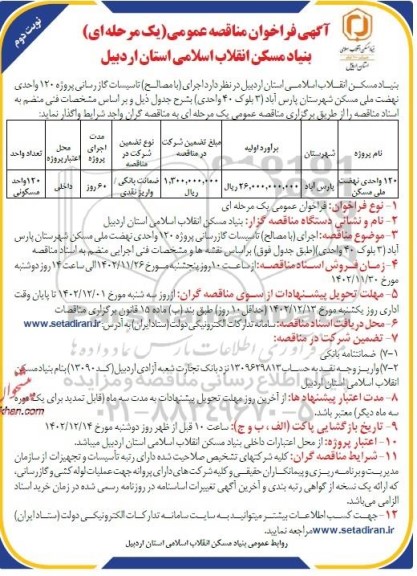 نوبت دوم
آگهی فراخوان مناقصه عمومی (یک مرحله ای)
بنیاد مسکن انقلاب اسلامی استان اردبیل
بنیاد مسکن انقلاب اسلامی استان اردبیل در نظر دارد اجرای (با مصالح) تاسیسات گازرسانی پروژه ۱۲۰ واحدی
نهضت ملی مسکن شهرستان پارس آباد (۳ بلوک ۴۰ واحدی) بشرح جدول ذیل و بر اساس مشخصات فنی منضم به
اسناد مناقصه را از طریق برگزاری مناقصه عمومی یک مرحله ای به مناقصه گران واجد شرایط واگذار نماید:
نام پروژه شهرستان برآورد اولیه مبلغ تضمین شرکت در مناقصه نوع تضمین شرکت در مناقصه مدت اجرای پروژه محل اعتبار پروژه تعداد واحد
۱۲۰ واحدی نهضت ملی مسکن پارس آباد ۲۶,۰۰۰,۰۰۰,۰۰۰ ریال ۱,۳۰۰,۰۰۰,۰۰۰ ریال ضمانت بانکی / واریز نقدی ۶۰ روز داخلی ۱۲۰ واحد مسکونی
۱- نوع فراخوان: فراخوان عمومی یک مرحله ای
۲- نام و نشانی دستگاه مناقصه گزار: بنیاد مسکن انقلاب اسلامی استان اردبیل
۳- موضوع مناقصه: اجرای (با مصالح) تاسیسات گازرسانی پروژه ۱۲۰ واحدی نهضت ملی مسکن شهرستان پارس
آباد (۳ بلوک ۴۰ واحدی) (طبق جدول فوق) براساس نقشه ها و مشخصات فنی اجرایی منضم به اسناد مناقصه
۴- زمان فروش اسناد مناقصه: از ساعت ۱۰ روز پنجشنبه مورخ ۱۴۰۲/۱۱/۲۶ الی ساعت ۱۴ روز دوشنبه
مورخ ۱۴۰۲/۱۱/۳۰
۵- مهلت تحویل پیشنهادات از سوی مناقصه گران: از روز سه شنبه مورخ ۱۴۰۲/۱۲/۰۱ تا پایان وقت
اداری روز یکشنبه مورخ ۱۴۰۲/۱۲/۱۳ (حداقل ۱۰ روز) طبق بند (ب) ماده ۱۵ قانون برگزاری مناقصات
۶- محل دریافت اسناد مناقصه: سامانه تدارکات الکترونیکی دولت (ستاد ایران) به آدرس www.setadiran.ir
۷- تضمین شرکت در مناقصه:
۷-۱) ضمانتنامه بانکی
۷-۲) واریز وجه نقد به حساب ۱۳۰۹۶۲۹۸۱۳ نزد بانک تجارت شعبه آزادی اردبیل (کد ۱۳۰۹۰) بنام بنیاد مسکن
انقلاب اسلامی استان اردبیل
۸- مدت اعتبار پیشنهاد ها: از آخرین روز مهلت تحویل پیشنهادات به مدت سه ماه (قابل تمدید برای یک دوره
سه ماه دیگر) معتبر باشد.
۹- تاریخ بازگشایی پاکت (الف، ب و ج): ساعت ۱۰ قبل از ظهر روز دوشنبه مورخ ۱۴۰۲/۱۲/۱۴
۱۰- اعتبار پروژه: از محل اعتبارات داخلی بنیاد مسکن انقلاب اسلامی استان اردبیل میباشد.
۱۱- شرایط مناقصه گران: کلیه شرکتهای تشخیص صلاحیت شده دارای رتبه تاسیسات و تجهیزات از سازمان
مدیریت و برنامه ریزی و پیمانکاران حقیقی و کلیه شرکت های دارای پروانه جهت عملیات لوله کشی و گازرسانی،
که ارائه یک نسخه از گواهی رتبه بندی و آخرین آگهی تغییرات اساسنامه در روزنامه رسمی شده در زمان خرید اسناد
الزامی می باشد.
۱۲- جهت کسب اطلاعات بیشتر میتوانید به سایت سامانه تدارکات الکترونیکی دولت (ستاد ایران)
www.setadiran.ir مراجعه نمایید.
روابط عمومی بنیاد مسکن انقلاب اسلامی استان اردبیل
۰۲۱-۸۸۳۴۹۶۷۰-۵